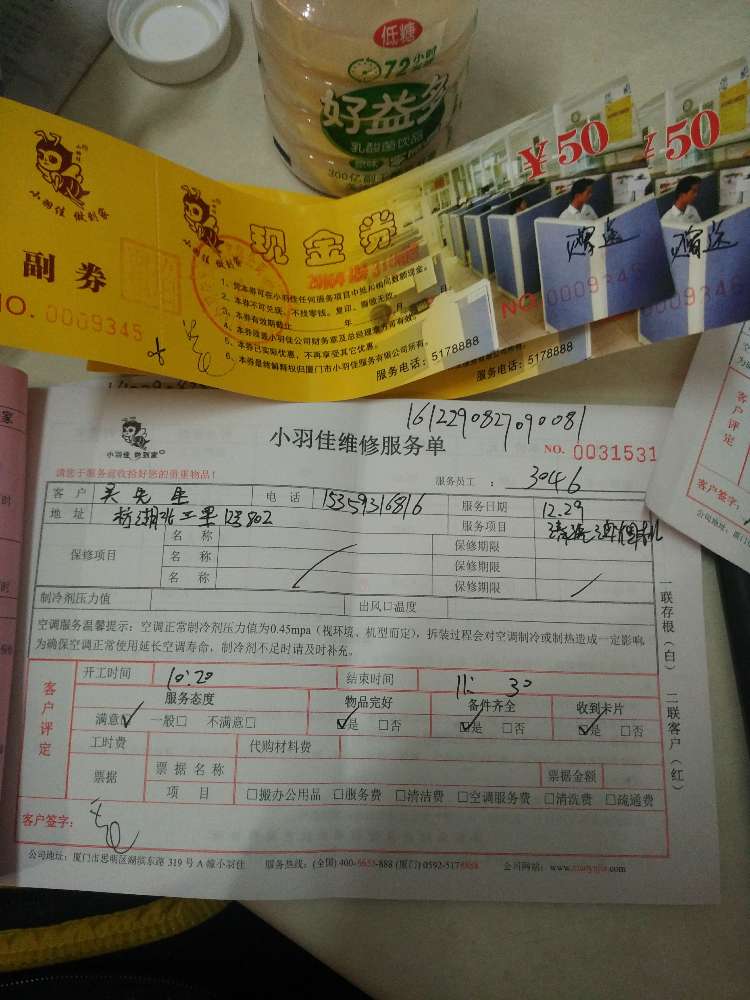 低糖
72小时
好益多
乳酸菌饮品
小羽佳 做到家
副券
NO. 0009345
小羽佳 做到家
现金券
¥50
¥50
赠送
赠送
NO. 0009345
2、本券不可兑现、不找零钱。复印、缩放无效。
3、本券有效期截止 年 月 日。
5、本券已实际优惠，不再享受其它优惠。
6、本券最终解释权归厦门市小羽佳服务有限公司所有。
服务电话：5178888
服务电话：5178888
1612290827090081
小羽佳 做到家
小羽佳维修服务单
NO. 0031531
请您于服务前收拾好您的贵重物品！
服务员工 ： 3046
客 户 吴先生 电 话 15359316816 服务日期 12.29
地 址 服务项目
保修项目 名 称 保修期限
名 称 保修期限
名 称 保修期限
制冷剂压力值 出风口温度
空调服务温馨提示：空调正常制冷剂压力值为0.45mpa（视环境、机型而定），拆装过程会对空调制冷或制热造成一定影响，
为确保空调正常使用延长空调寿命，制冷剂不足时请及时补充。
客户评定
开工时间 10:20 结束时间 11:30
服务态度 物品完好 备件齐全 收到卡片
满意☑ 一般□ 不满意□ ☑是 □否 ☑是 □否 ☑是 □否
工时费 代购材料费
票据 票据名称 票据金额
项 目 □搬办公用品 □服务费 □清洁费 □空调服务费 □清洗费 □疏通费
客户签字：
一联存根（白） 二联客户（红）
公司地址：厦门市思明区湖滨东路 319 号 A 幢小羽佳 服务热线：(全国) 400-6653-888 (厦门) 0592-5178888 公司网站：www.xiaoyujia.com
客户评定
客户签字：